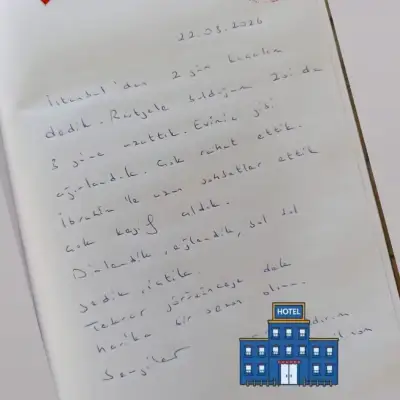 22.03.2026
İstanbul'dan 2 gün kaçalım
dedik. Rastgele bulduğum 2si de
3 güne uzattık. Evimiz gibi
ağırlandık. Çok rahat ettik.
İbrahim ile uzun sohbetler ettik
çok keyif aldık.
Dinlendik, eğlendik, bol bol
yedik, içtik.
Tekrar görüşünceye dek
harika bir sezon olsun.
Sevgiler
HOTEL